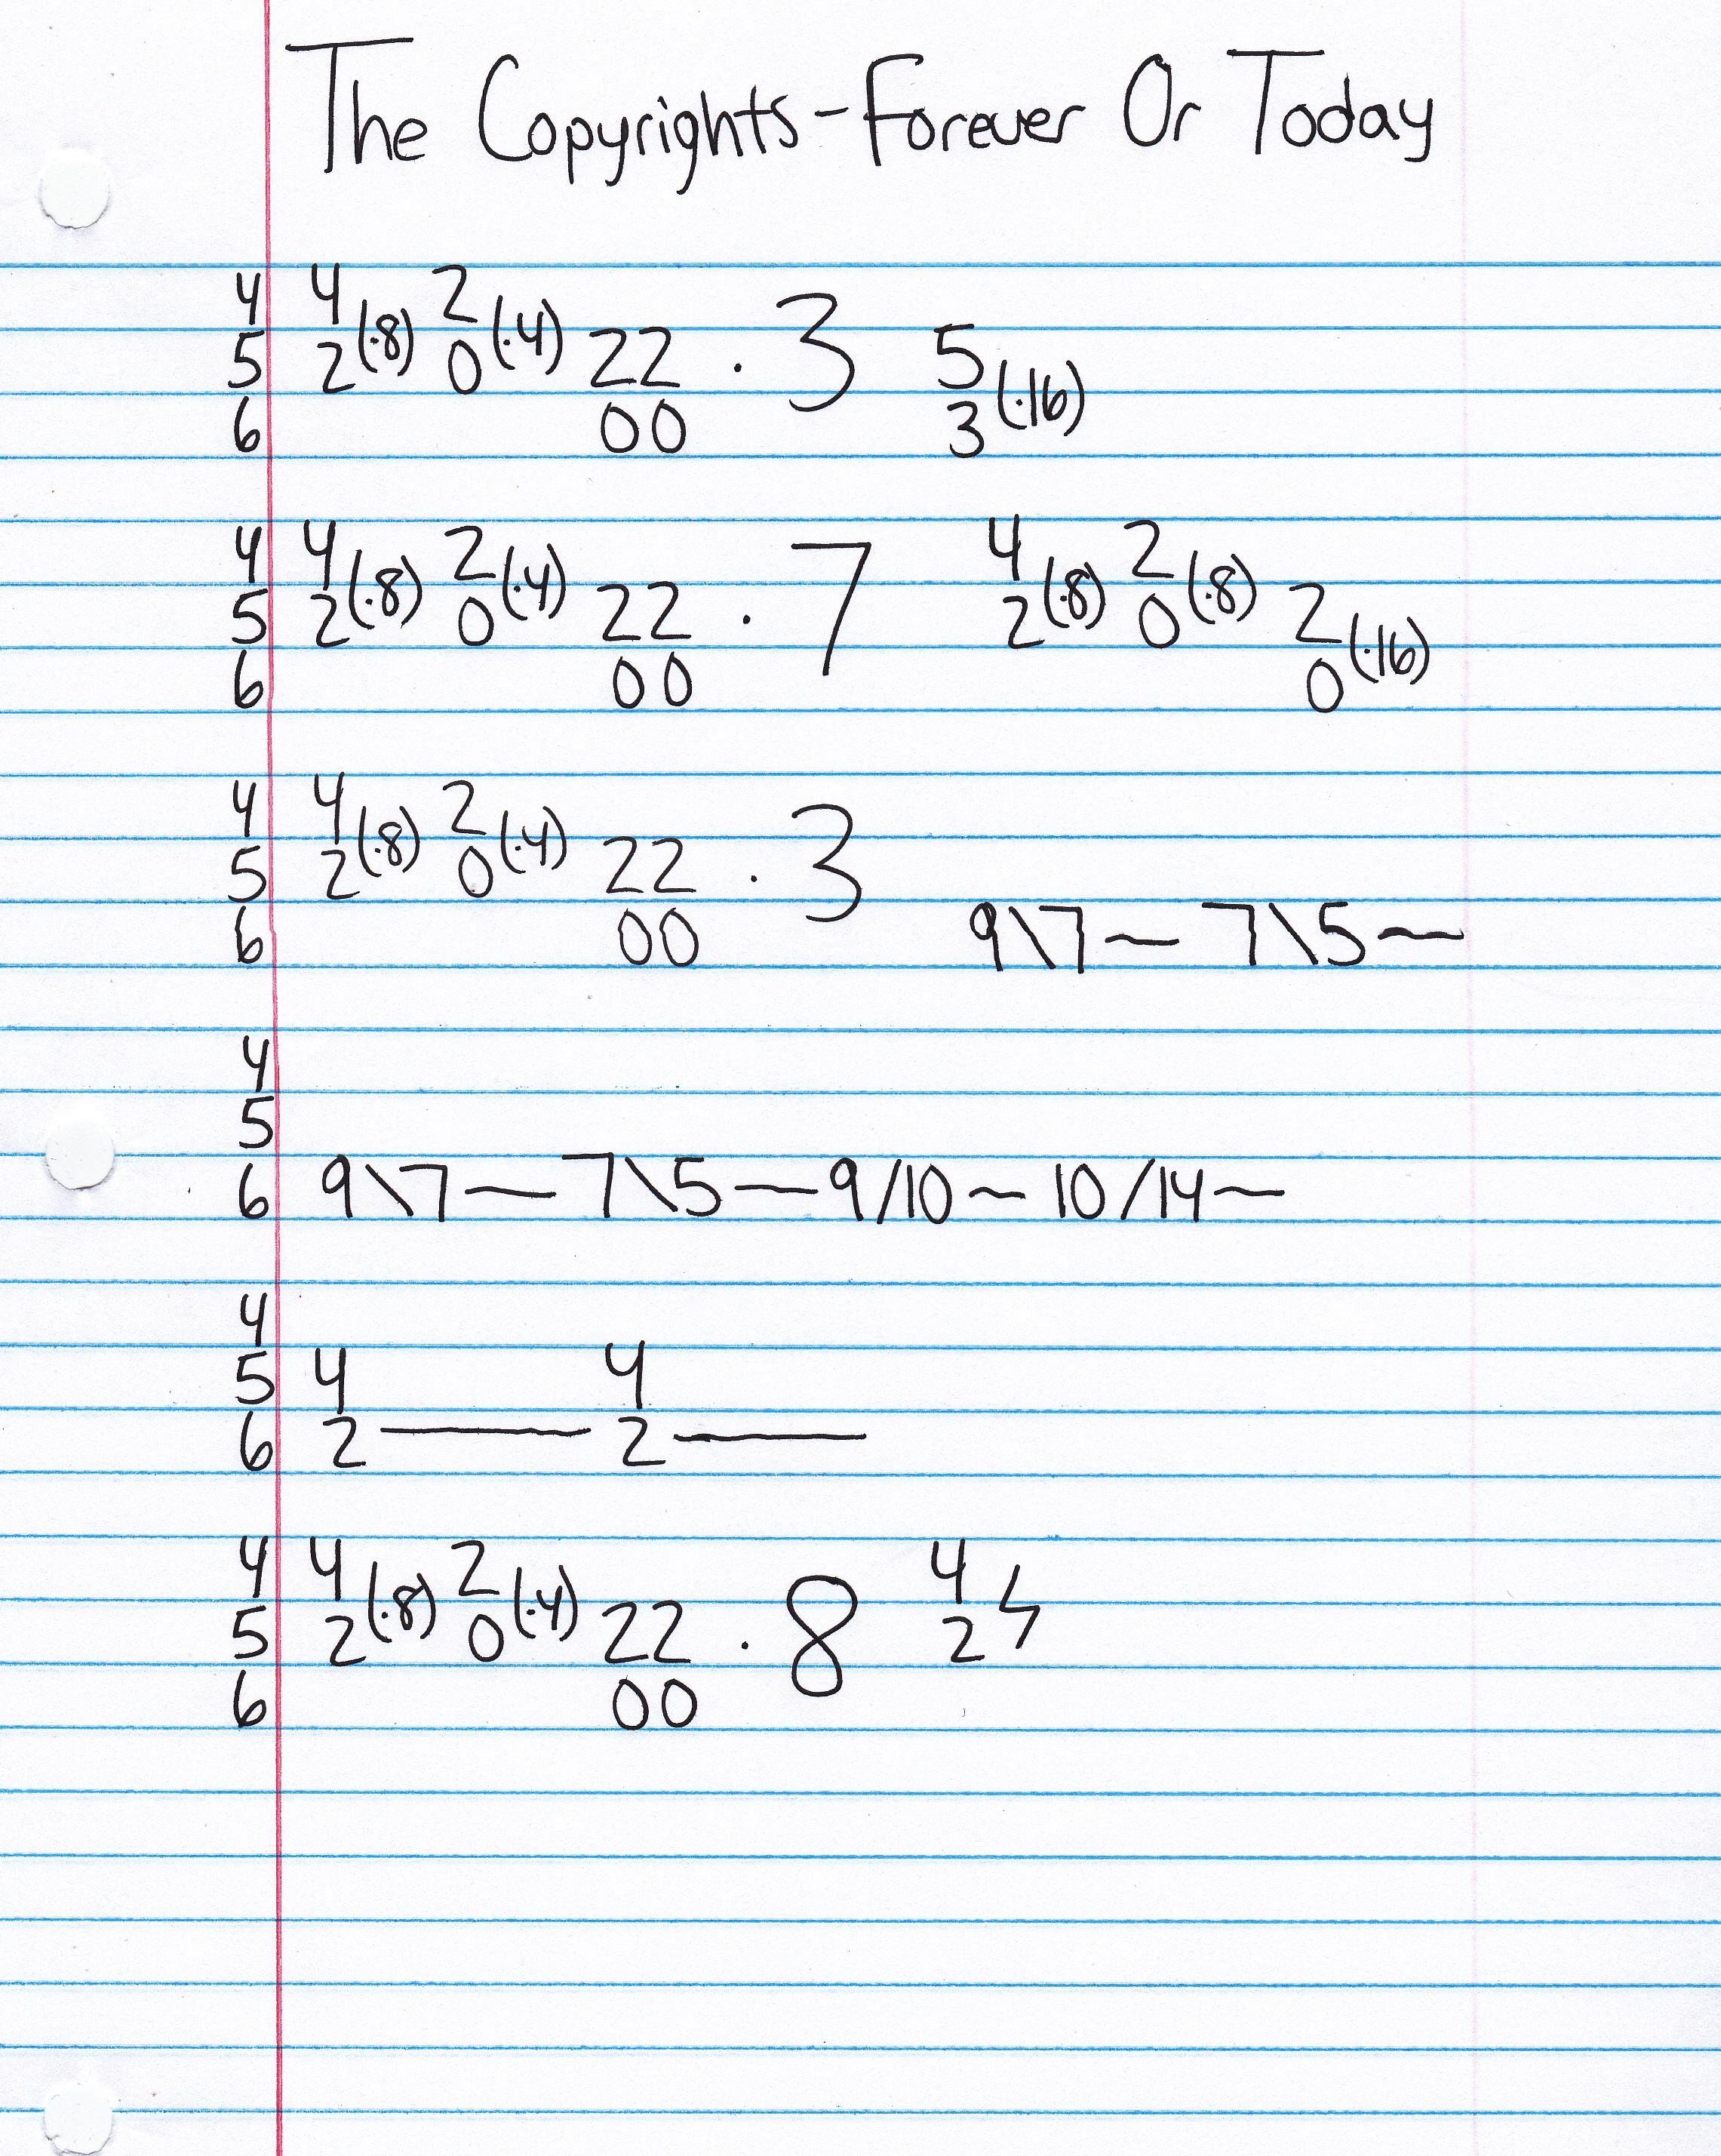 The Copyrights - Forever Or Today
4 4 (·8) 2 (·4)
5 2 0 22 · 3 5 (·16)
6 00 3
4 4 (·8) 2 (·4) 4 (·8) 2 (·8)
5 2 0 22 · 7 2 0 2 (·16)
6 00 0
4 4 (·8) 2 (·4)
5 2 0 22 · 3
6 00 9\7~ 7\5~
4
5
6 9\7~ 7\5~ 9/10~ 10/14~
4
5 4 4
6 2— 2—
4 4 (·8) 2 (·4) 4
5 2 0 22 · 8 2
6 00